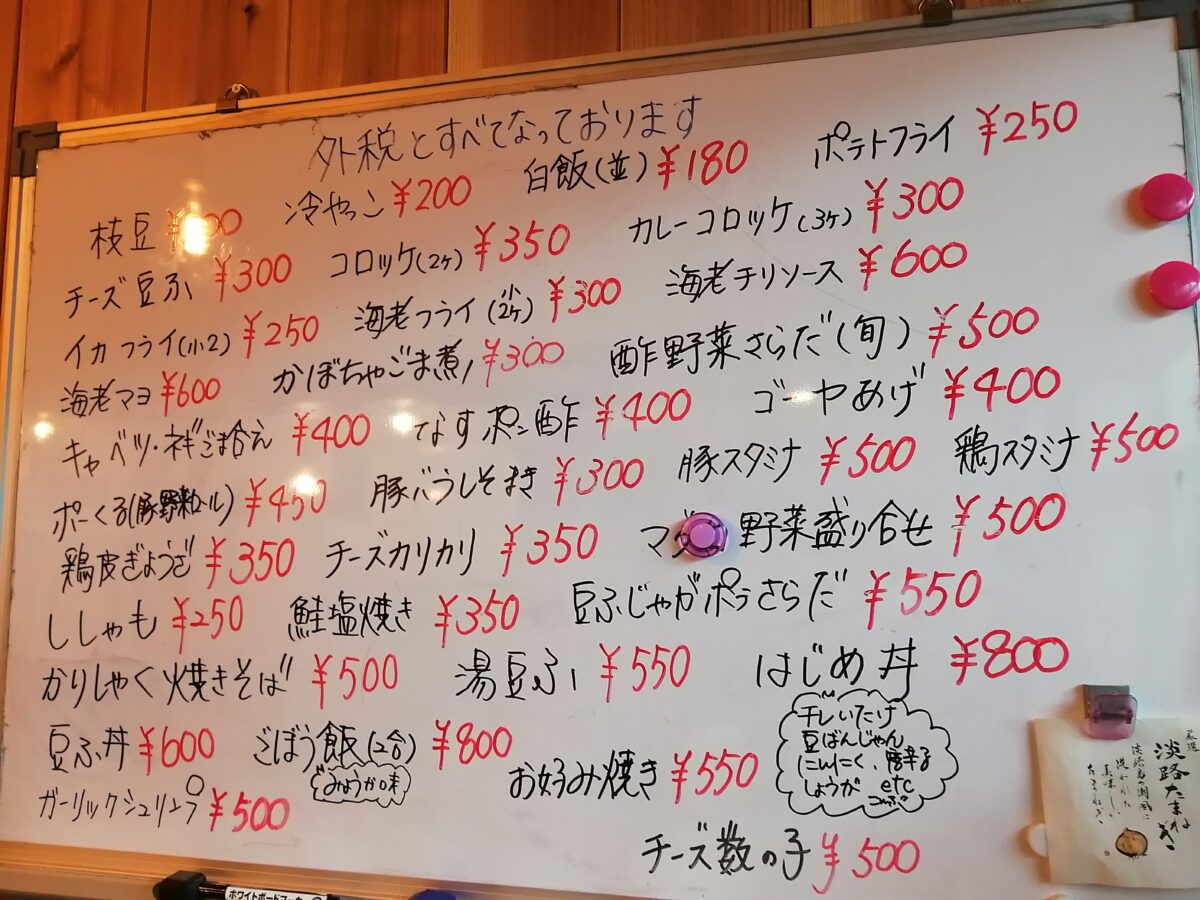 外税とすべてなっております
枝豆 冷やっこ ¥200 白飯(並) ¥180 ポテトフライ ¥250
チーズ豆ふ ¥300 コロッケ(2ヶ) ¥350 カレーコロッケ(3ヶ) ¥300
イカフライ(小2) ¥250 海老フライ(小2ヶ) ¥300 海老チリソース ¥600
海老マヨ ¥600 かぼちゃごま煮 ¥300 酢野菜さらだ(旬) ¥500
キャベツ・ネギごま合え ¥400 なすポン酢 ¥400 ゴーヤあげ ¥400
ポーくる(豚野菜ロール) ¥450 豚バラしそまき ¥300 豚スタミナ ¥500 鶏スタミナ ¥500
鶏皮ぎょうざ ¥350 チーズカリカリ ¥350 野菜盛り合せ ¥500
ししゃも ¥250 鮭塩焼き ¥350 豆ふじゃがポテさらだ ¥550
かりしゃく焼きそば ¥500 湯豆ふ ¥550 はじめ丼 ¥800
豆ふ丼 ¥600 ごぼう飯(2合) ¥800 お好み焼き ¥550
干しいたけ
豆ばんじゃん
にんにく、唐辛子
しょうが etc
こんぶ
ガーリックシュリンプ ¥500
チーズ数の子 ¥500
厳選
淡路たまねぎ
淡路島の潮風に
洗われた
美味しい
たまねぎ
ホワイトボードマーカー